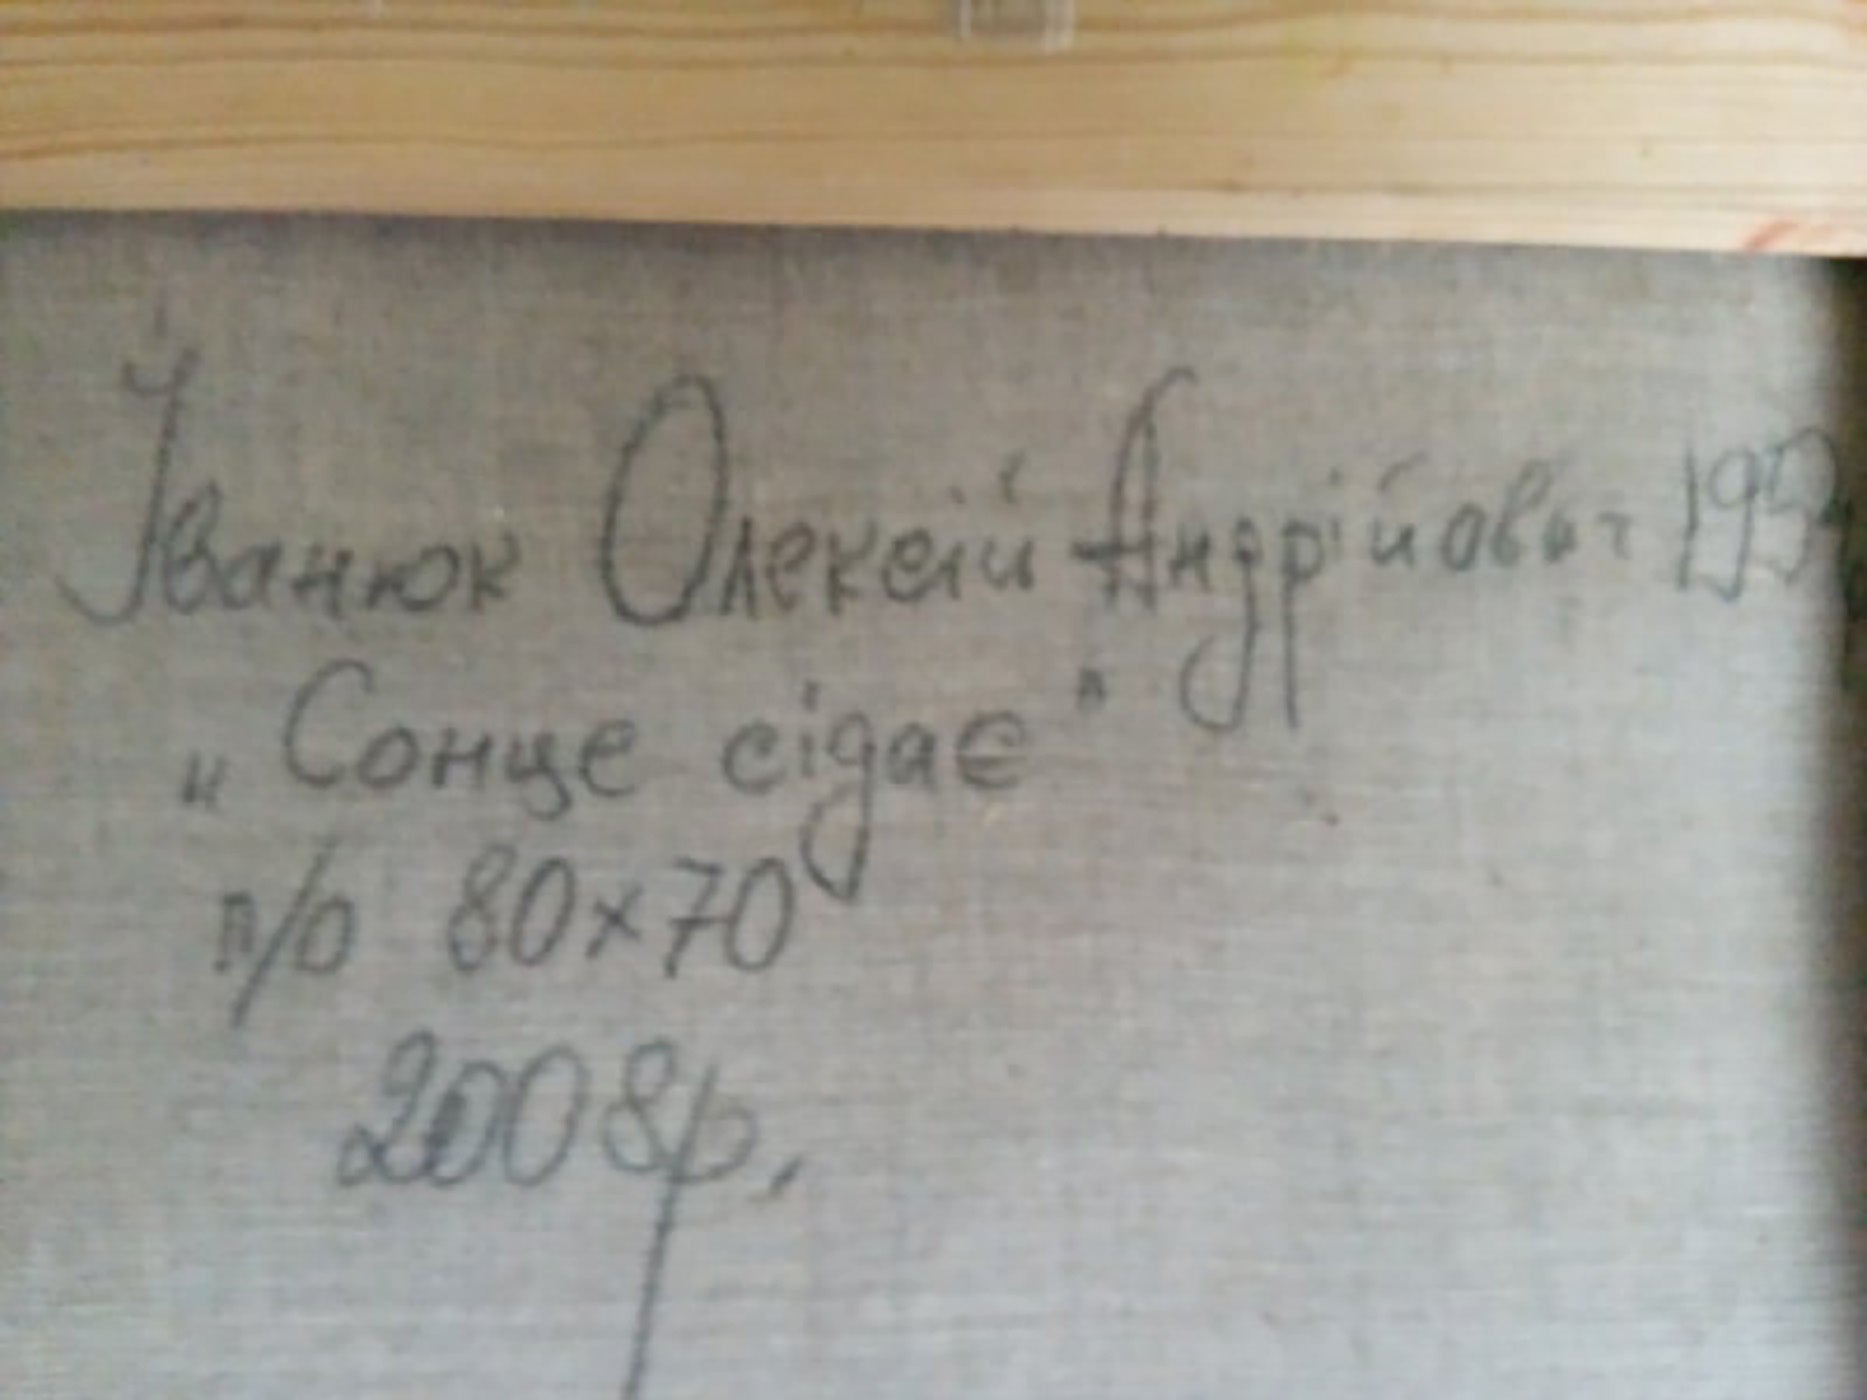 Іванюк Олексій Андрійович
„Сонце сідає"
п/о 80х70
2008р.